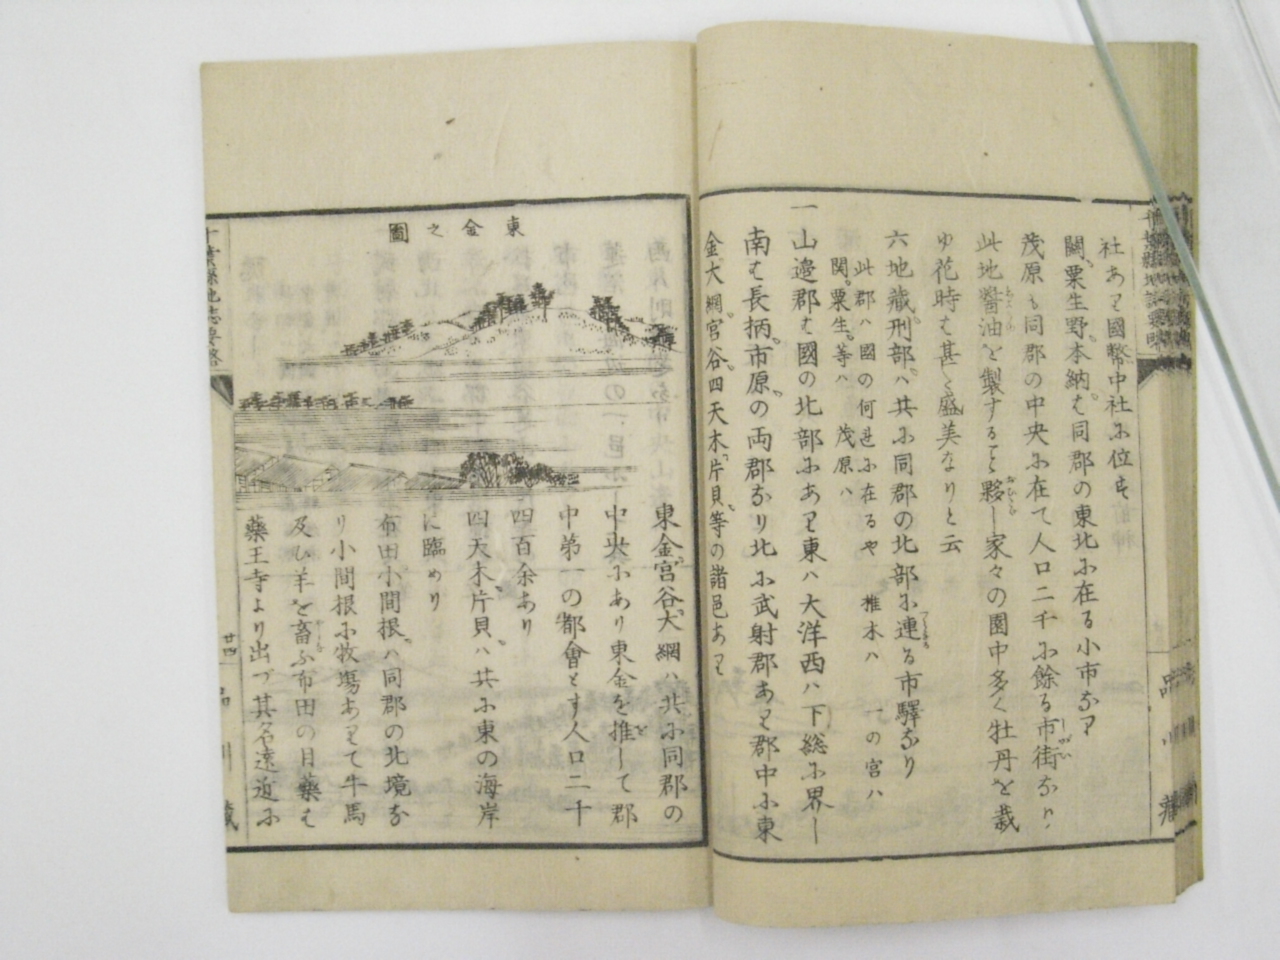 社あり國幣中社に位す
関、粟生野、本納は同郡の東北に在る小市なり
茂原も同郡の中央に在て人口二千に餘る市街なり
此地醤油を製すること夥し家々の園中多く牡丹を栽
ゆ花時は甚く盛美なりと云
六地藏、刑部、ハ共に同郡の北部に連る市驛なり
此郡ハ國の何れに在るや 椎木ハ 一の宮ハ
関。粟生。等ハ 茂原ハ
一
山邉郡は國の北部にあり東ハ大洋西ハ下総に界し
南は長柄、市原、の両郡なり北に武射郡あり郡中に東
金、大網、宮谷、四天木、片貝、等の諸邑あり
東金之圖
東金、宮谷、大網ハ共に同郡の
中央にあり東金を推して郡
中第一の都會とす人口二千
四百余あり
四天木、片貝、ハ共に東の海岸
に臨めり
布田小間根、ハ同郡の北境な
り小間根に牧塲ありて牛馬
及ひ羊を畜ふ布田の目藥は
藥王寺より出づ其名遠近に
千葉縣地誌要略
廿四